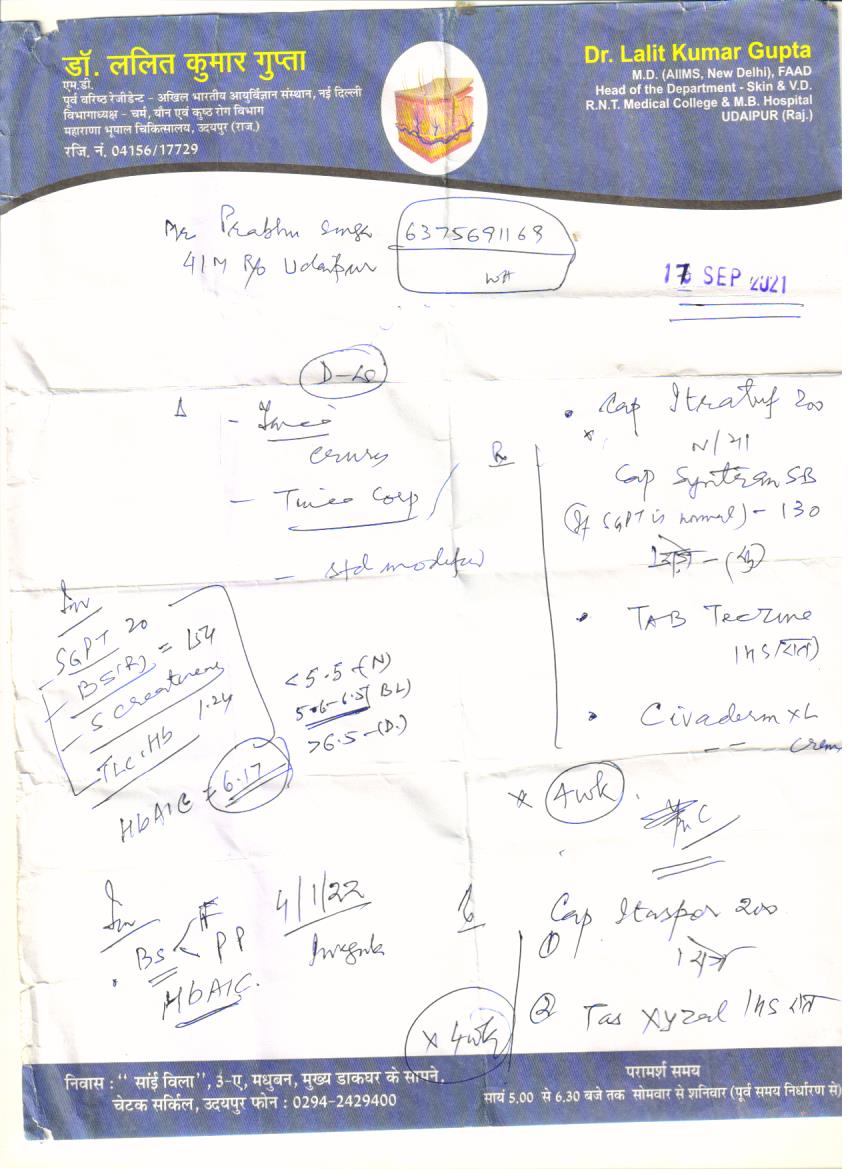 डॉ. ललित कुमार गुप्ता
एम.डी.
पूर्व वरिष्ठ रेजीडेन्ट - अखिल भारतीय आयुर्विज्ञान संस्थान, नई दिल्ली
विभागाध्यक्ष - चर्म, यौन एवं कुष्ठ रोग विभाग
महाराणा भूपाल चिकित्सालय, उदयपुर (राज.)
रजि. नं. 04156/17729
Dr. Lalit Kumar Gupta
M.D. (AIIMS, New Delhi), FAAD
Head of the Department - Skin & V.D.
R.N.T. Medical College & M.B. Hospital
UDAIPUR (Raj.)
Mr Prabhu Singh
41M R/o Udaipur
6375691169
17 SEP 2021
Δ - Tinea
cruris
- Tinea Corp
- Std modified
Rx
Cap 200
Cap SB
(If SGPT is normal) - 130
TAB Tecrine
1HS
Civaderm XL
Cream
x 4wk
Inv
SGPT 20
BS(R) = 154
S creatinine
1.24
TLC, Hb
HbA1C = 6.17
<5.5-(N)
5.6-6.5(BL)
>6.5-(D.)
Inv
BS F
PP
HbA1C.
4/1/22
Cap Itaspor 200
① 
② Tab Xyzal 1HS रात
x 4wk
निवास : " सांई विला", 3-ए, मधुबन, मुख्य डाकघर के सामने,
चेटक सर्किल, उदयपुर फोन : 0294-2429400
परामर्श समय
सायं 5.00 से 6.30 बजे तक सोमवार से शनिवार (पूर्व समय निर्धारण से)